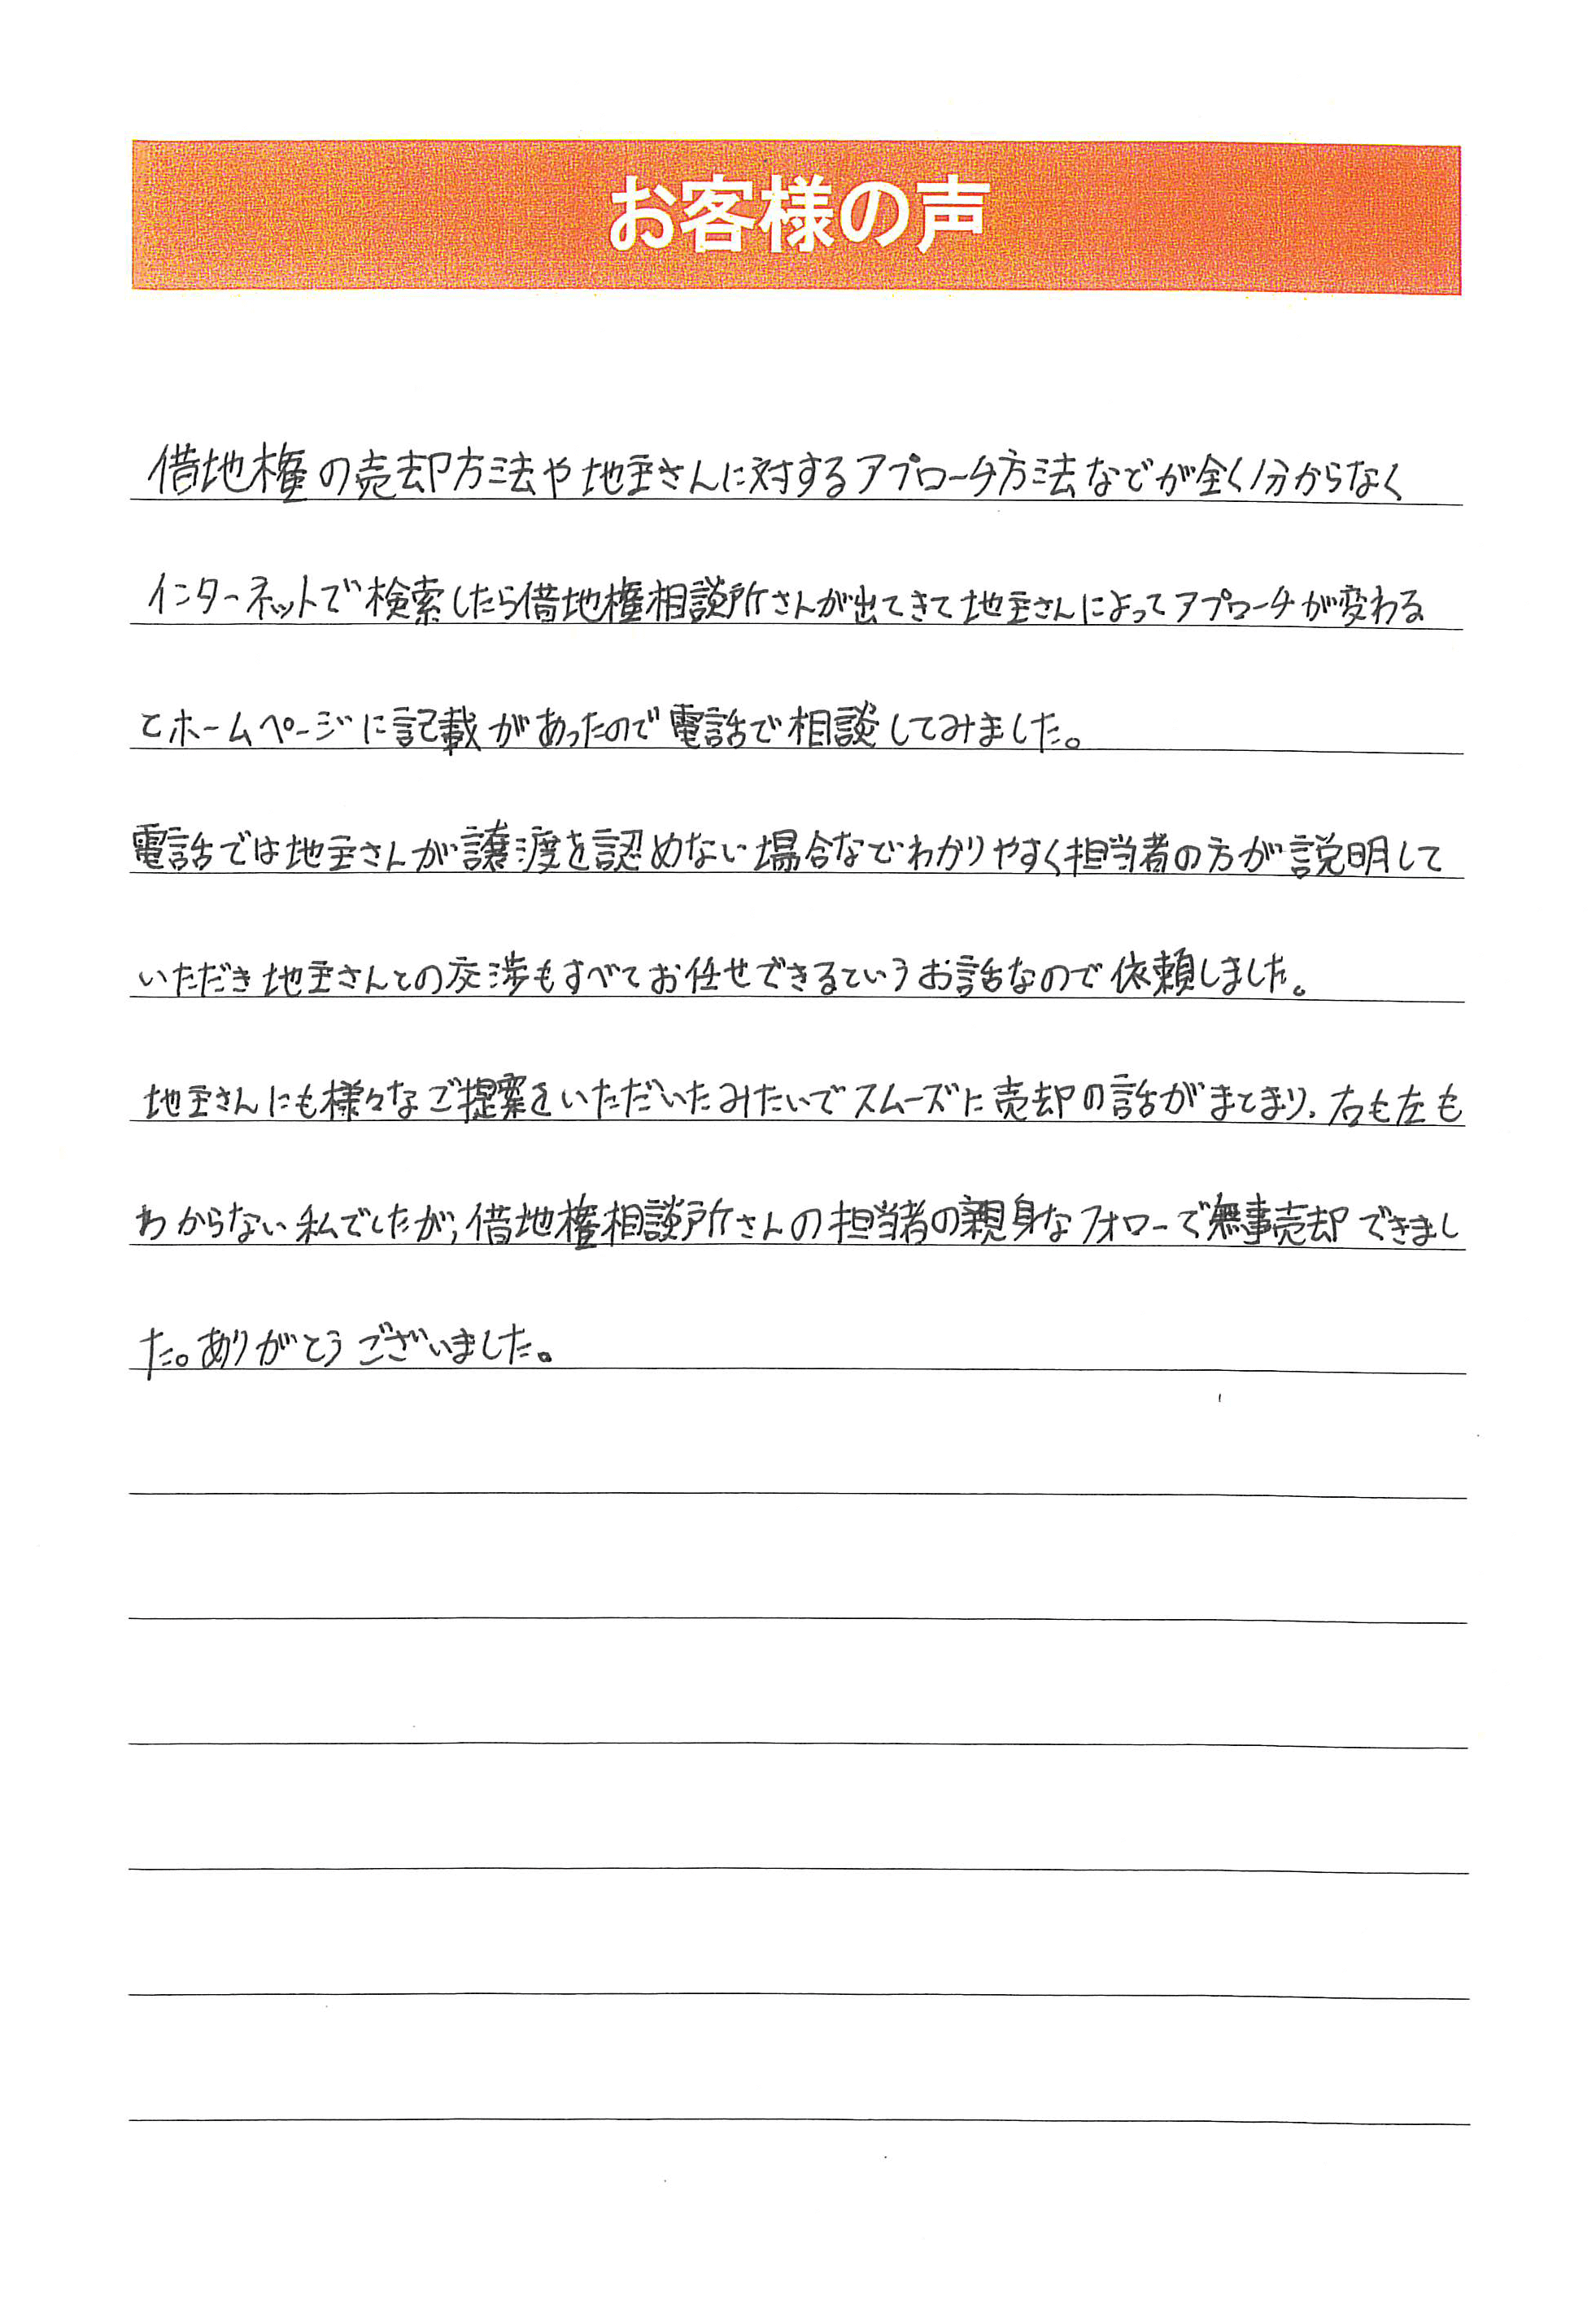 お客様の声
借地権の売却方法や地主さんに対するアプローチ方法などが全く分からなく
インターネットで検索したら借地権相談所さんが出てきて地主さんによってアプローチが変わる
とホームページに記載があったので電話で相談してみました。
電話では地主さんが譲渡を認めない場合などわかりやすく担当者の方が説明して
いただき地主さんとの交渉もすべてお任せできるというお話なので依頼しました。
地主さんにも様々なご提案をいただいたみたいでスムーズに売却の話がまとまり、右も左も
わからない私でしたが、借地権相談所さんの担当者の親身なフォローで無事売却できまし
た。ありがとうございました。